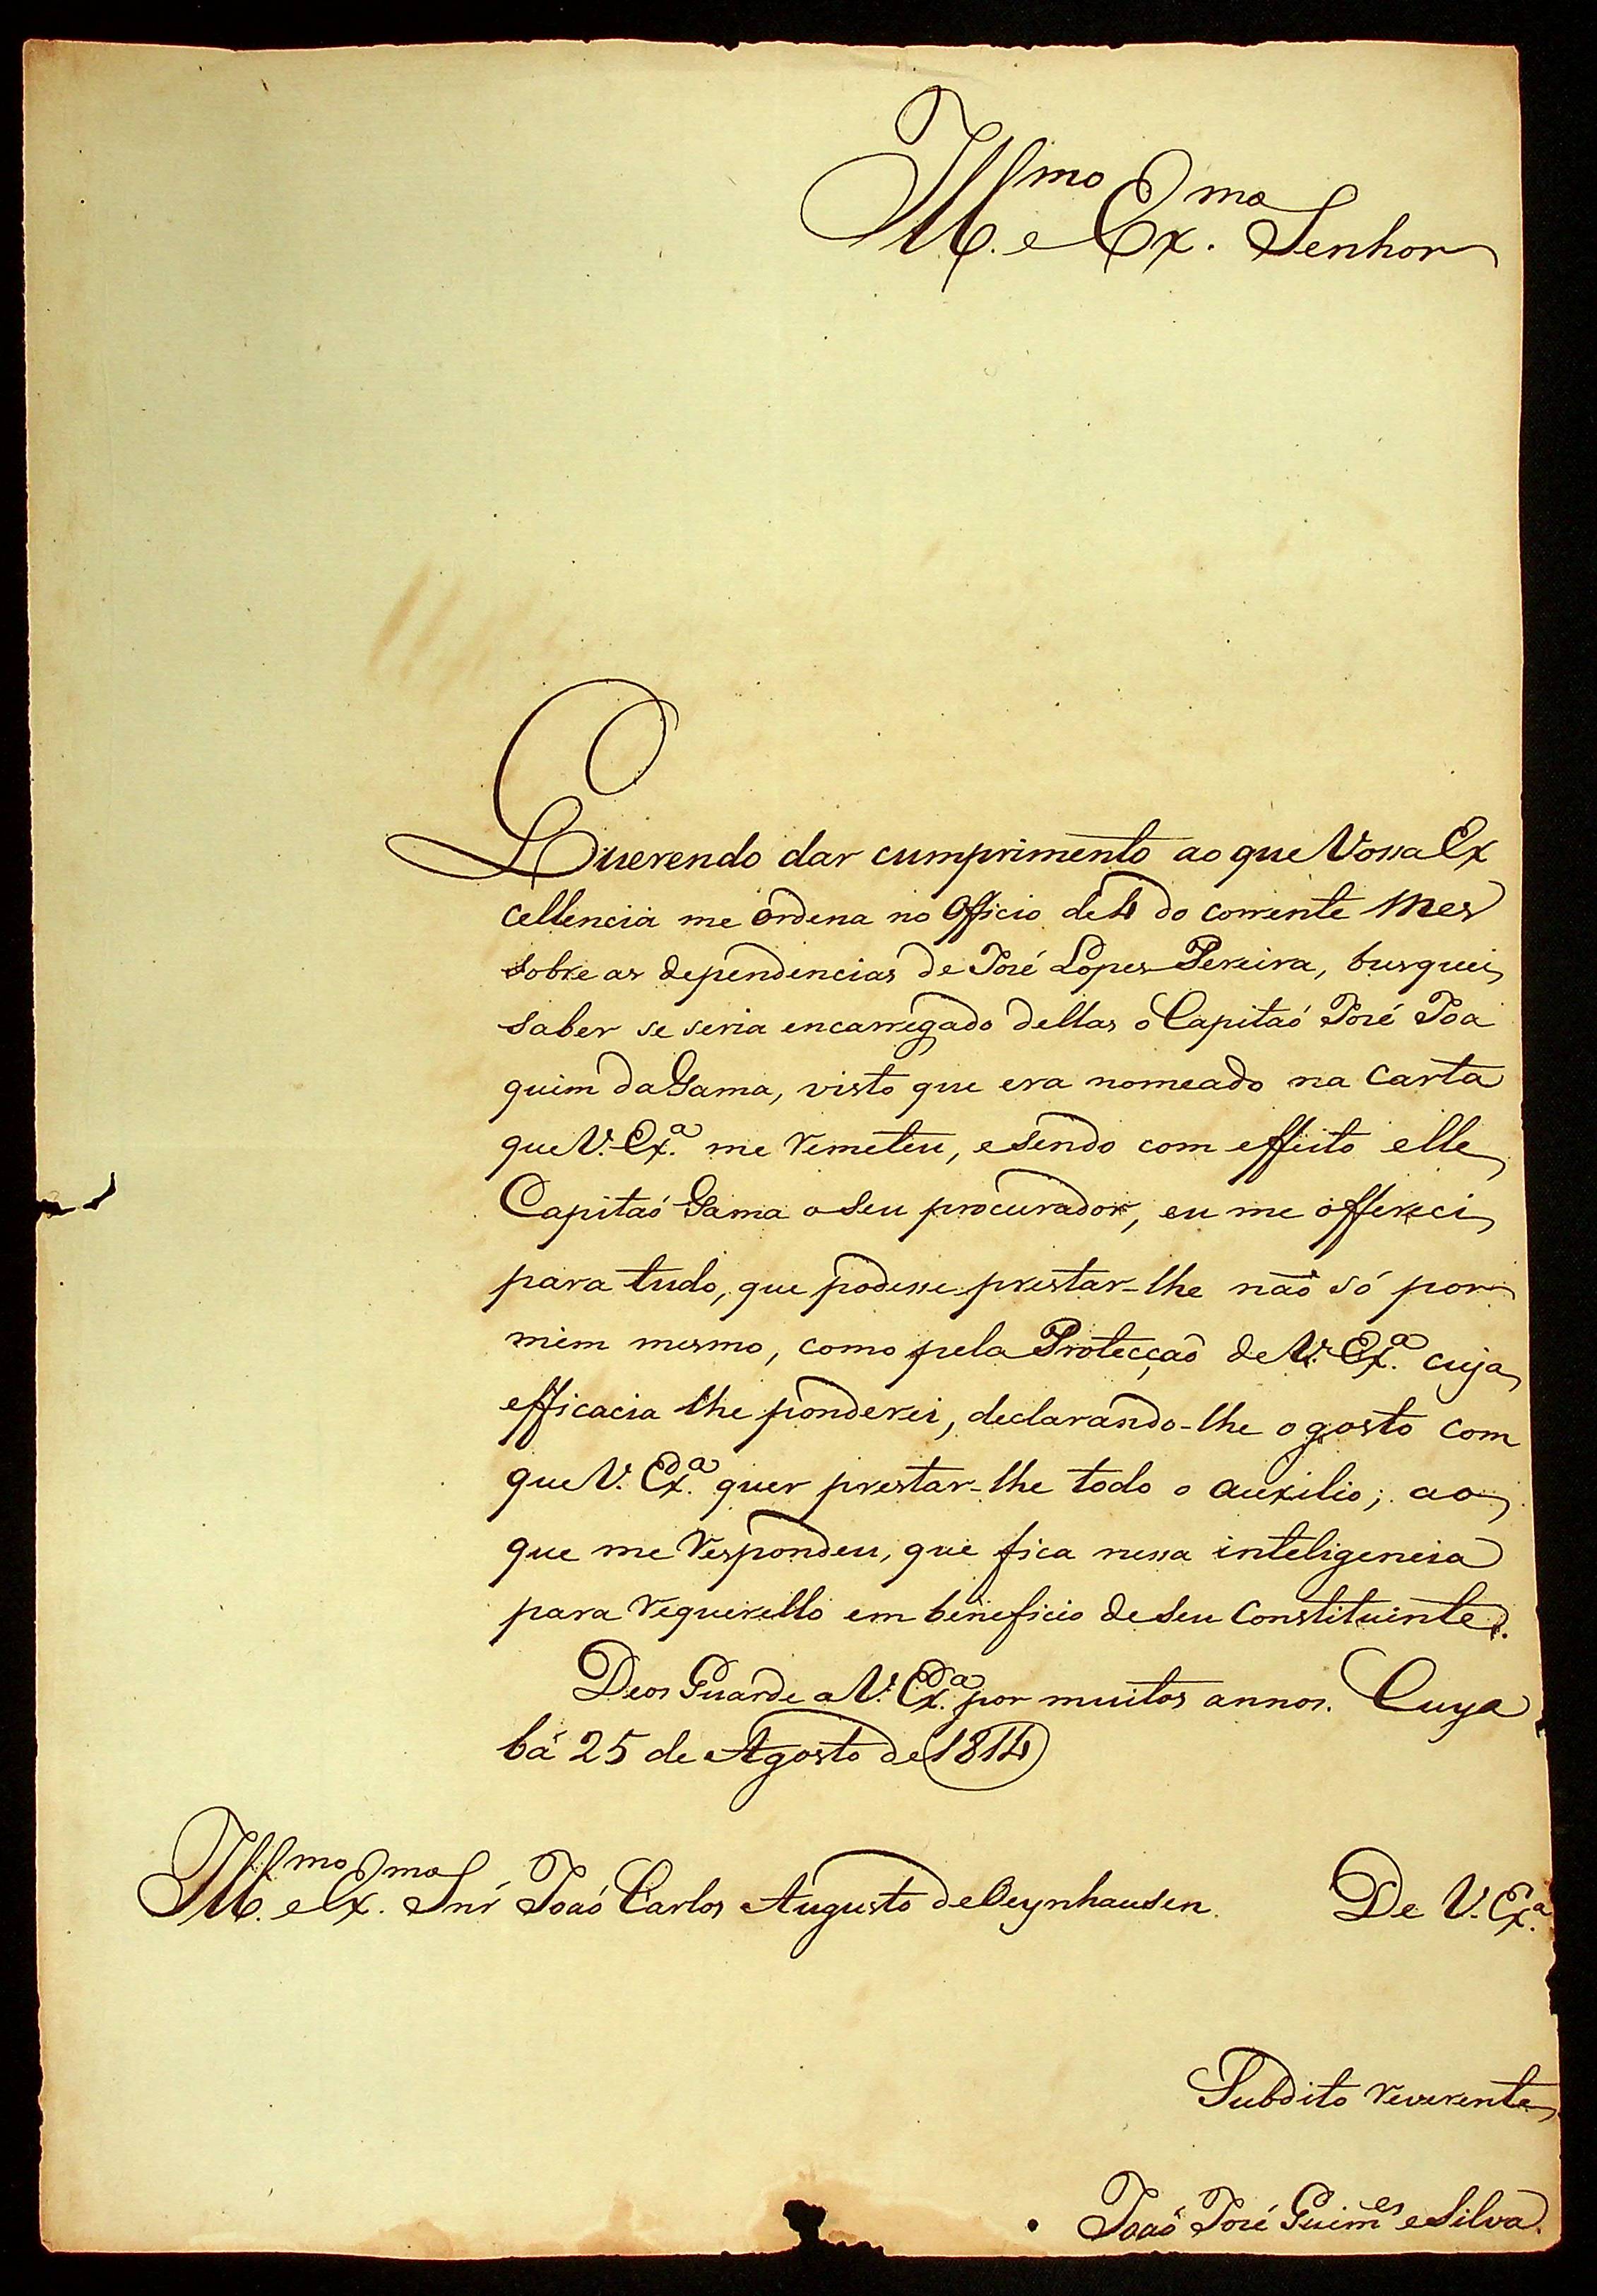 Ill.mo e Ex.mo Senhor
Querendo dar cumprimento ao que Vossa Ex
cellencia me ordena no Officio de 4 do corrente Mes
sobre as dependencias de José Lopes Pereira, busquei
saber se seria encarregado dellas o Capitaõ José Joa
quim da Gama, visto que era nomeado na Carta
que V. Ex.a me remeteu, e sendo com effeito elle
Capitaõ Gama o seu procurador, eu me offereci
para tudo, que podesse prestar-lhe naõ só por
mim mesmo, como pela Protecçaõ de V. Ex.a cuja
efficacia lhe ponderei, declarando-lhe o gosto com
que V. Ex.a quer prestar-lhe todo o auxilio; ao
que me respondeu, que fica nessa inteligencia
para requerello em beneficio de seu Constituinte.
Deos Guarde a V. Ex.a por muitos annos. Cuya
bá 25 de Agosto de 1814
Ill.mo e Ex.mo Snr João Carlos Augusto de Oeynhausen. De V. Ex.a
Subdito reverente
Joaõ José Guim.es e Silva.